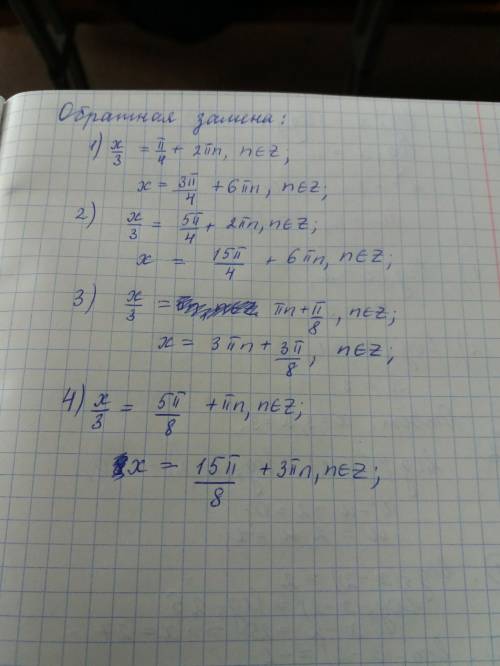 Обратная замена:
1) x/3 = π/4 + 2πn, n∈Z;
x = 3π/4 + 6πn, n∈Z;
2) x/3 = 5π/4 + 2πn, n∈Z;
x = 15π/4 + 6πn, n∈Z;
3) x/3 = πn + π/8, n∈Z;
x = 3πn + 3π/8, n∈Z;
4) x/3 = 5π/8 + πn, n∈Z;
x = 15π/8 + 3πn, n∈Z;